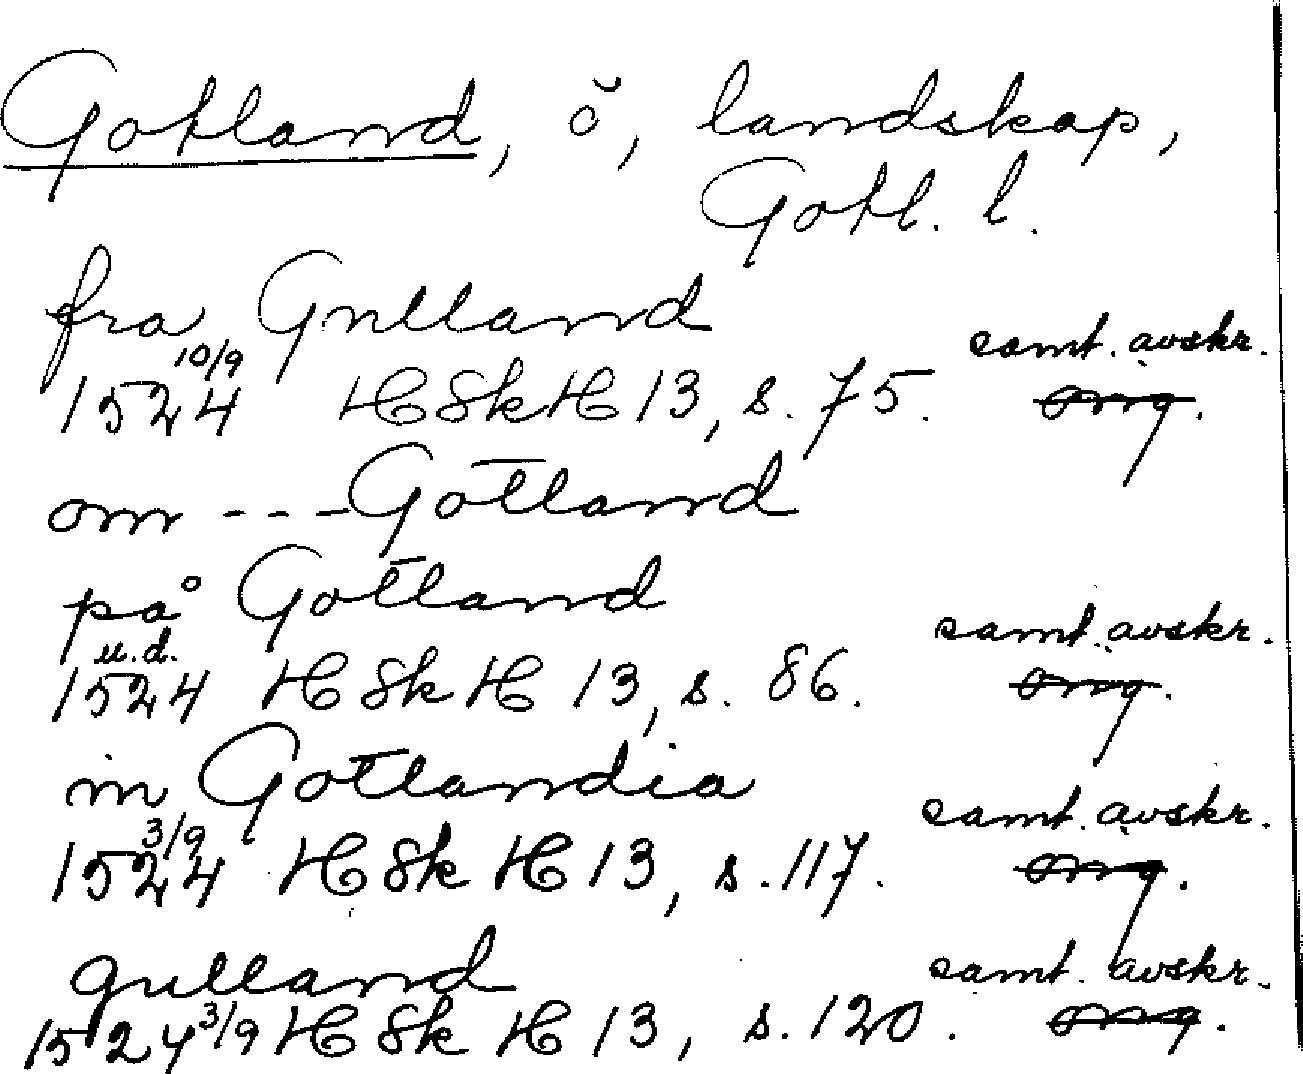 Gotland, ö, landskap,
Gotl. l.
fra Gulland
1524 10/9 HSkH 13, s. 75. samt. avskr. orig.
om --- Gotland
på Gotland
1524 u.d. HSkH 13, s. 86. samt. avskr. orig.
in Gotlandia
1524 3/9 HSkH 13, s. 117. samt. avskr. orig.
gulland
1524 3/9 HSkH 13, s. 120. samt. avskr. orig.